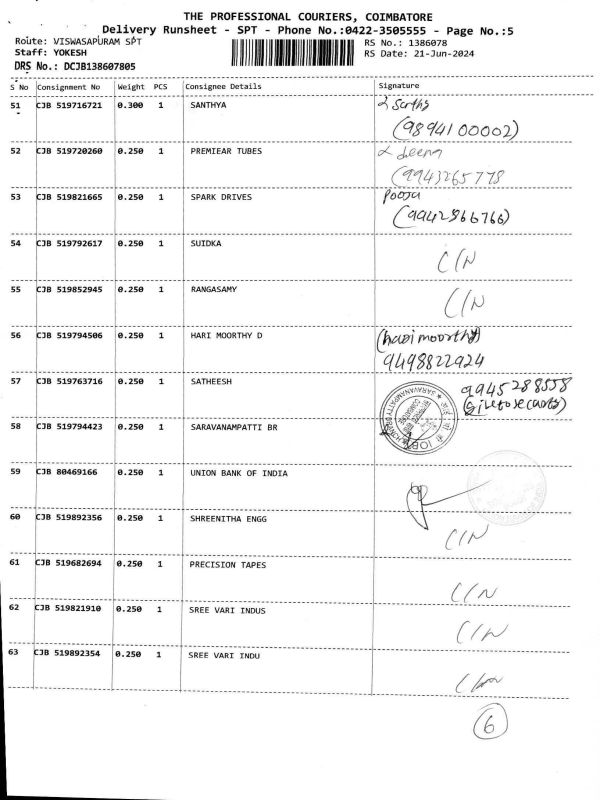 THE PROFESSIONAL COURIERS, COIMBATORE
Delivery Runsheet - SPT - Phone No.:0422-3505555 - Page No.:5
Route: VISWASAPURAM SPT RS No.: 1386078
Staff: YOKESH RS Date: 21-Jun-2024
DRS No.: DCJB138607805
S No Consignment No Weight PCS Consignee Details Signature
51 CJB 519716721 0.300 1 SANTHYA
(9894100002)
52 CJB 519720260 0.250 1 PREMIEAR TUBES
(9943265778
53 CJB 519821665 0.250 1 SPARK DRIVES Pooja
(9942866766)
54 CJB 519792617 0.250 1 SUIDKA C/N
55 CJB 519852945 0.250 1 RANGASAMY C/N
56 CJB 519794506 0.250 1 HARI MOORTHY D (hari moorthy)
9498822924
57 CJB 519763716 0.250 1 SATHEESH 9945288558
58 CJB 519794423 0.250 1 SARAVANAMPATTI BR
59 CJB 80469166 0.250 1 UNION BANK OF INDIA
60 CJB 519892356 0.250 1 SHREENITHA ENGG C/N
61 CJB 519682694 0.250 1 PRECISION TAPES C/N
62 CJB 519821910 0.250 1 SREE VARI INDUS C/N
63 CJB 519892354 0.250 1 SREE VARI INDU C/N
6